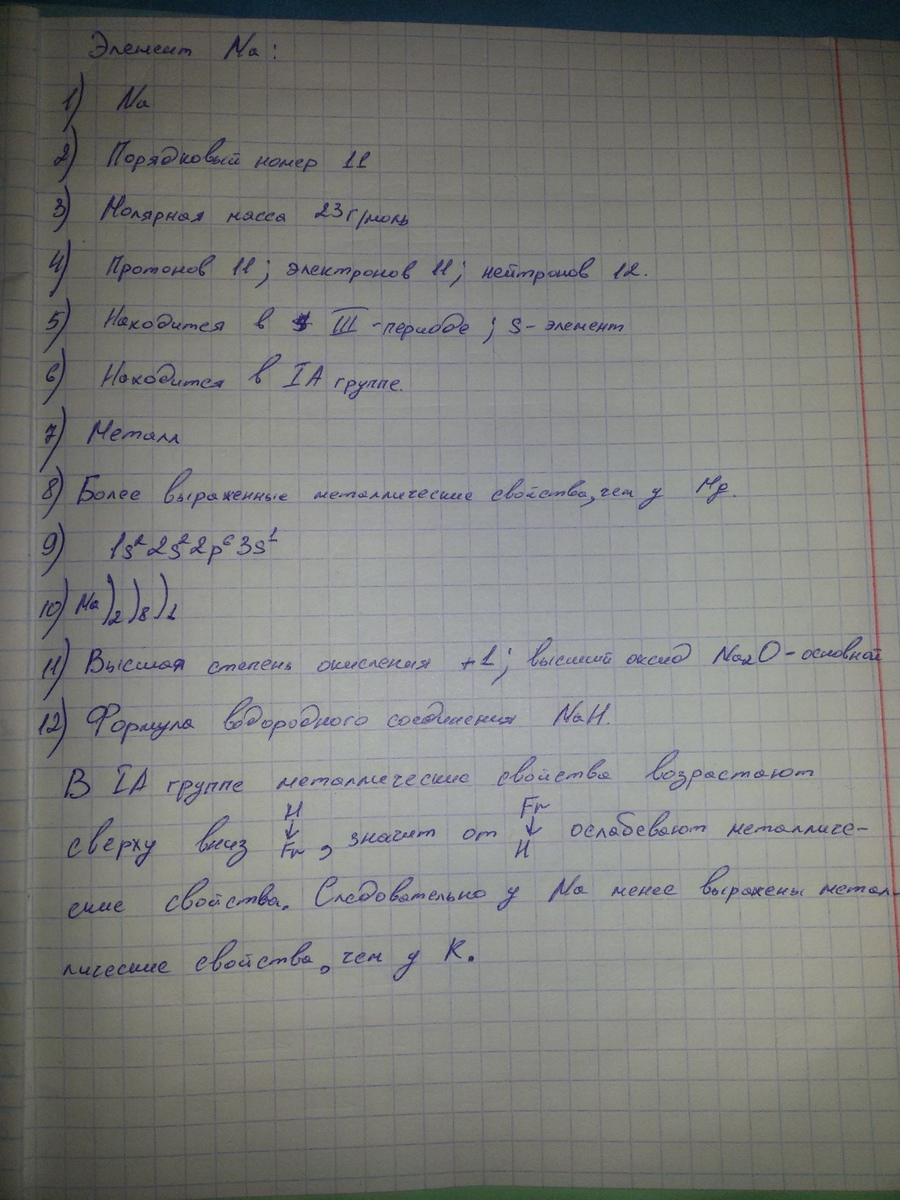 Элемент Na:
1) Na
2) Порядковый номер 11
3) Молярная масса 23г/моль
4) Протонов 11; электронов 11; нейтронов 12.
5) Находится в III-периоде; s-элемент
6) Находится в IA группе.
7) Металл
8) Более выраженные металлические свойства, чем у Mg.
9) 1s² 2s² 2p⁶ 3s¹
10) Na)₂)₈)₁
11) Высшая степень окисления +1; высший оксид Na₂O - основной
12) Формула водородного соединения NaH.
В IA группе металлические свойства возрастают
сверху вниз H ↓ Fr, значит от Fr ↓ H ослабевают металличе-
ские свойства. Следовательно у Na менее выражены метал-
лические свойства, чем у K.